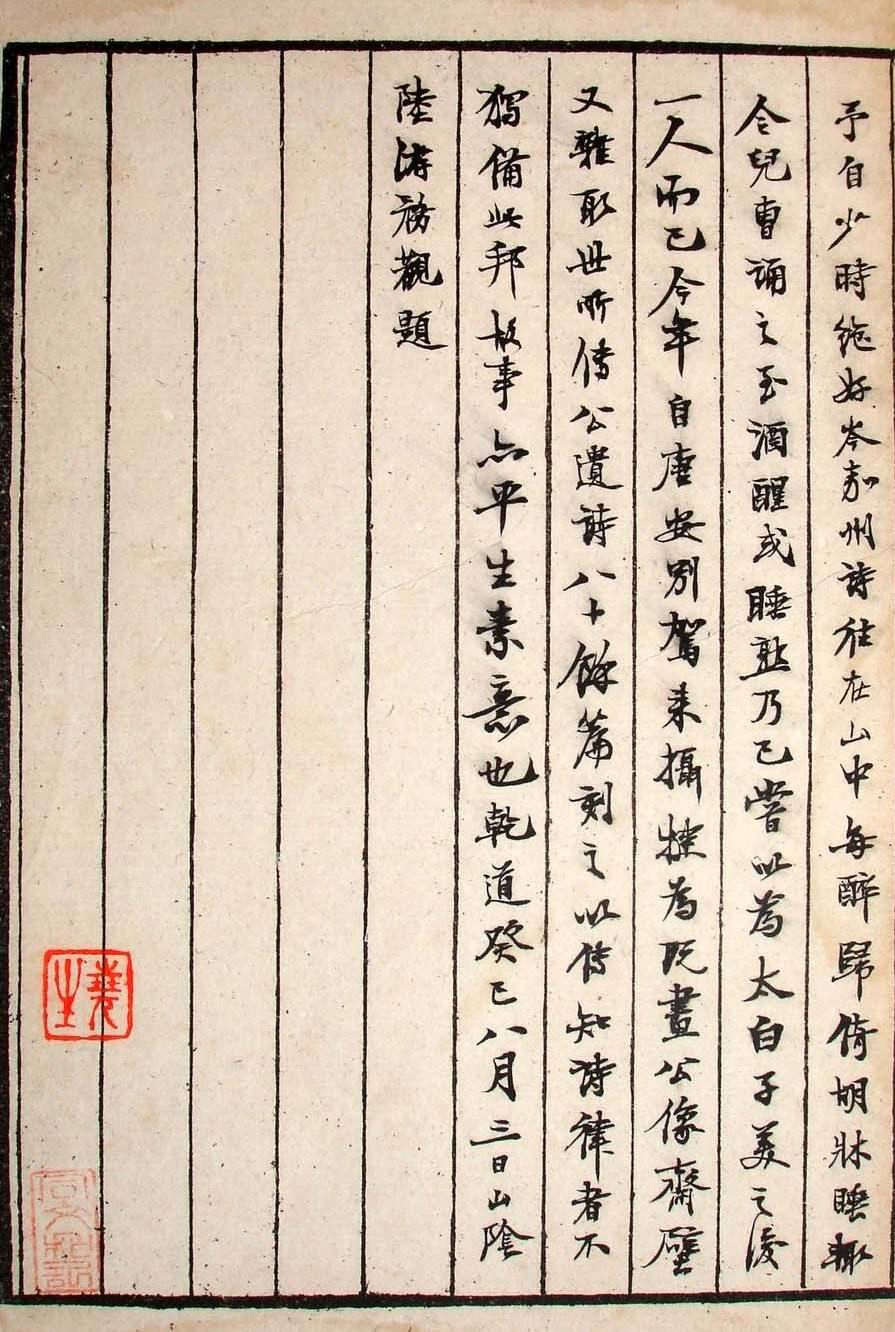 予自少時絶好岑嘉州詩往在山中每醉歸倚胡牀睡輒
令兒曹誦之至酒醒或睡熟乃已嘗以為太白子美之後
一人而已今年自唐安別駕来攝犍為既畫公像齋壁
又雜取世所傳公遺詩八十餘篇刻之以傳知詩律者不
獨備此邦故事亦平生素意也乾道癸巳八月三日山陰
陸游務觀題